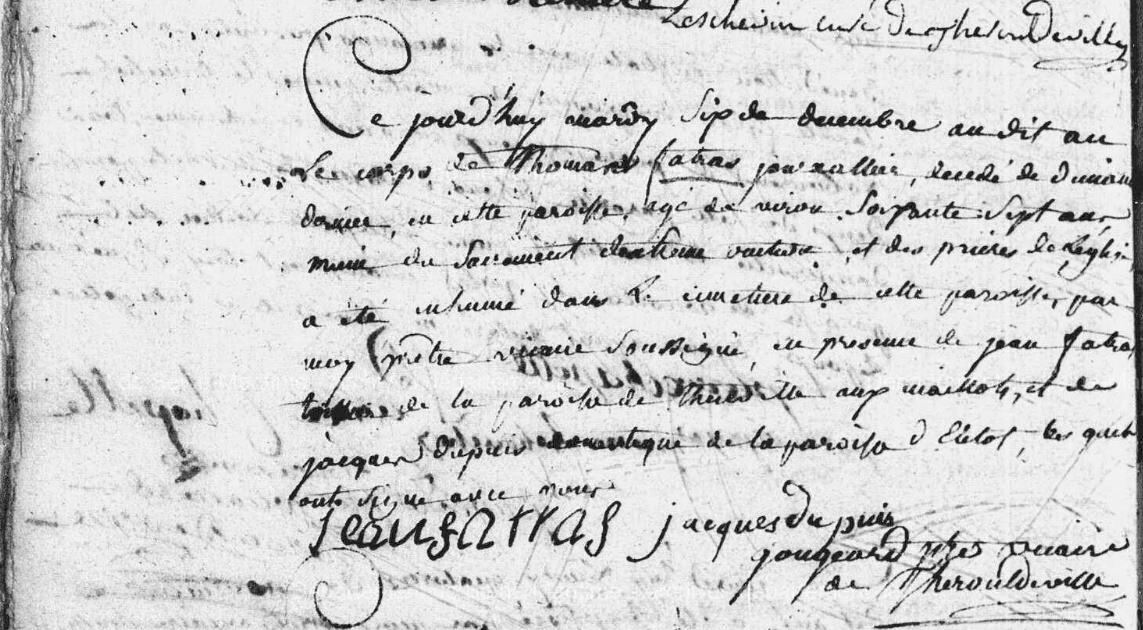 curé de
Ce jourd'huy mardy six de decembre au dit an
Le corps de Thomas fatras journallier, decedé de dimanc
dernier, en cette paroisse, agé de viron soixante sept ans
muni du sacrement dextreme onction, et des prieres de Leglise,
a été inhumé dans le cimetiere de cette paroisse, par
moy prêtre vicaire soussigné, en presence de jean fatras
de la paroisse de theuville aux maillots, et de
jacques dupuis domestique de la paroisse d'Eletot, les quels
ont signé avec nous
jean fattras jacques du puis
jougeard ptre vicaire
de Therouldeville